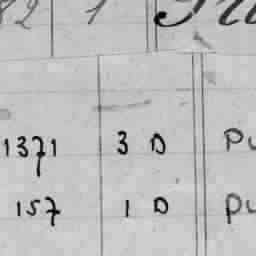 82 1
1371 3 D Pu
157 1 D Pu